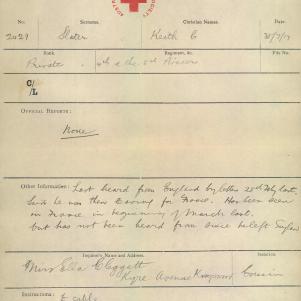 No. Surname. Christian Names. Date.
2029 Slater Keith C 30/7/17
Rank. Regiment, &c. File No.
Private 4th
C/
/L
OFFICIAL REPORTS:
None
Other Information: Last heard from England by letter 25th Feby last.
Said he was then leaving for France. Has been seen
in France in beginning of March last.
but has not been heard from since he left England
Inquirer's Name and Address. Relation.
Miss Ella Cleggett
Eyre Avenue Kingswood Cousin
Instructions: